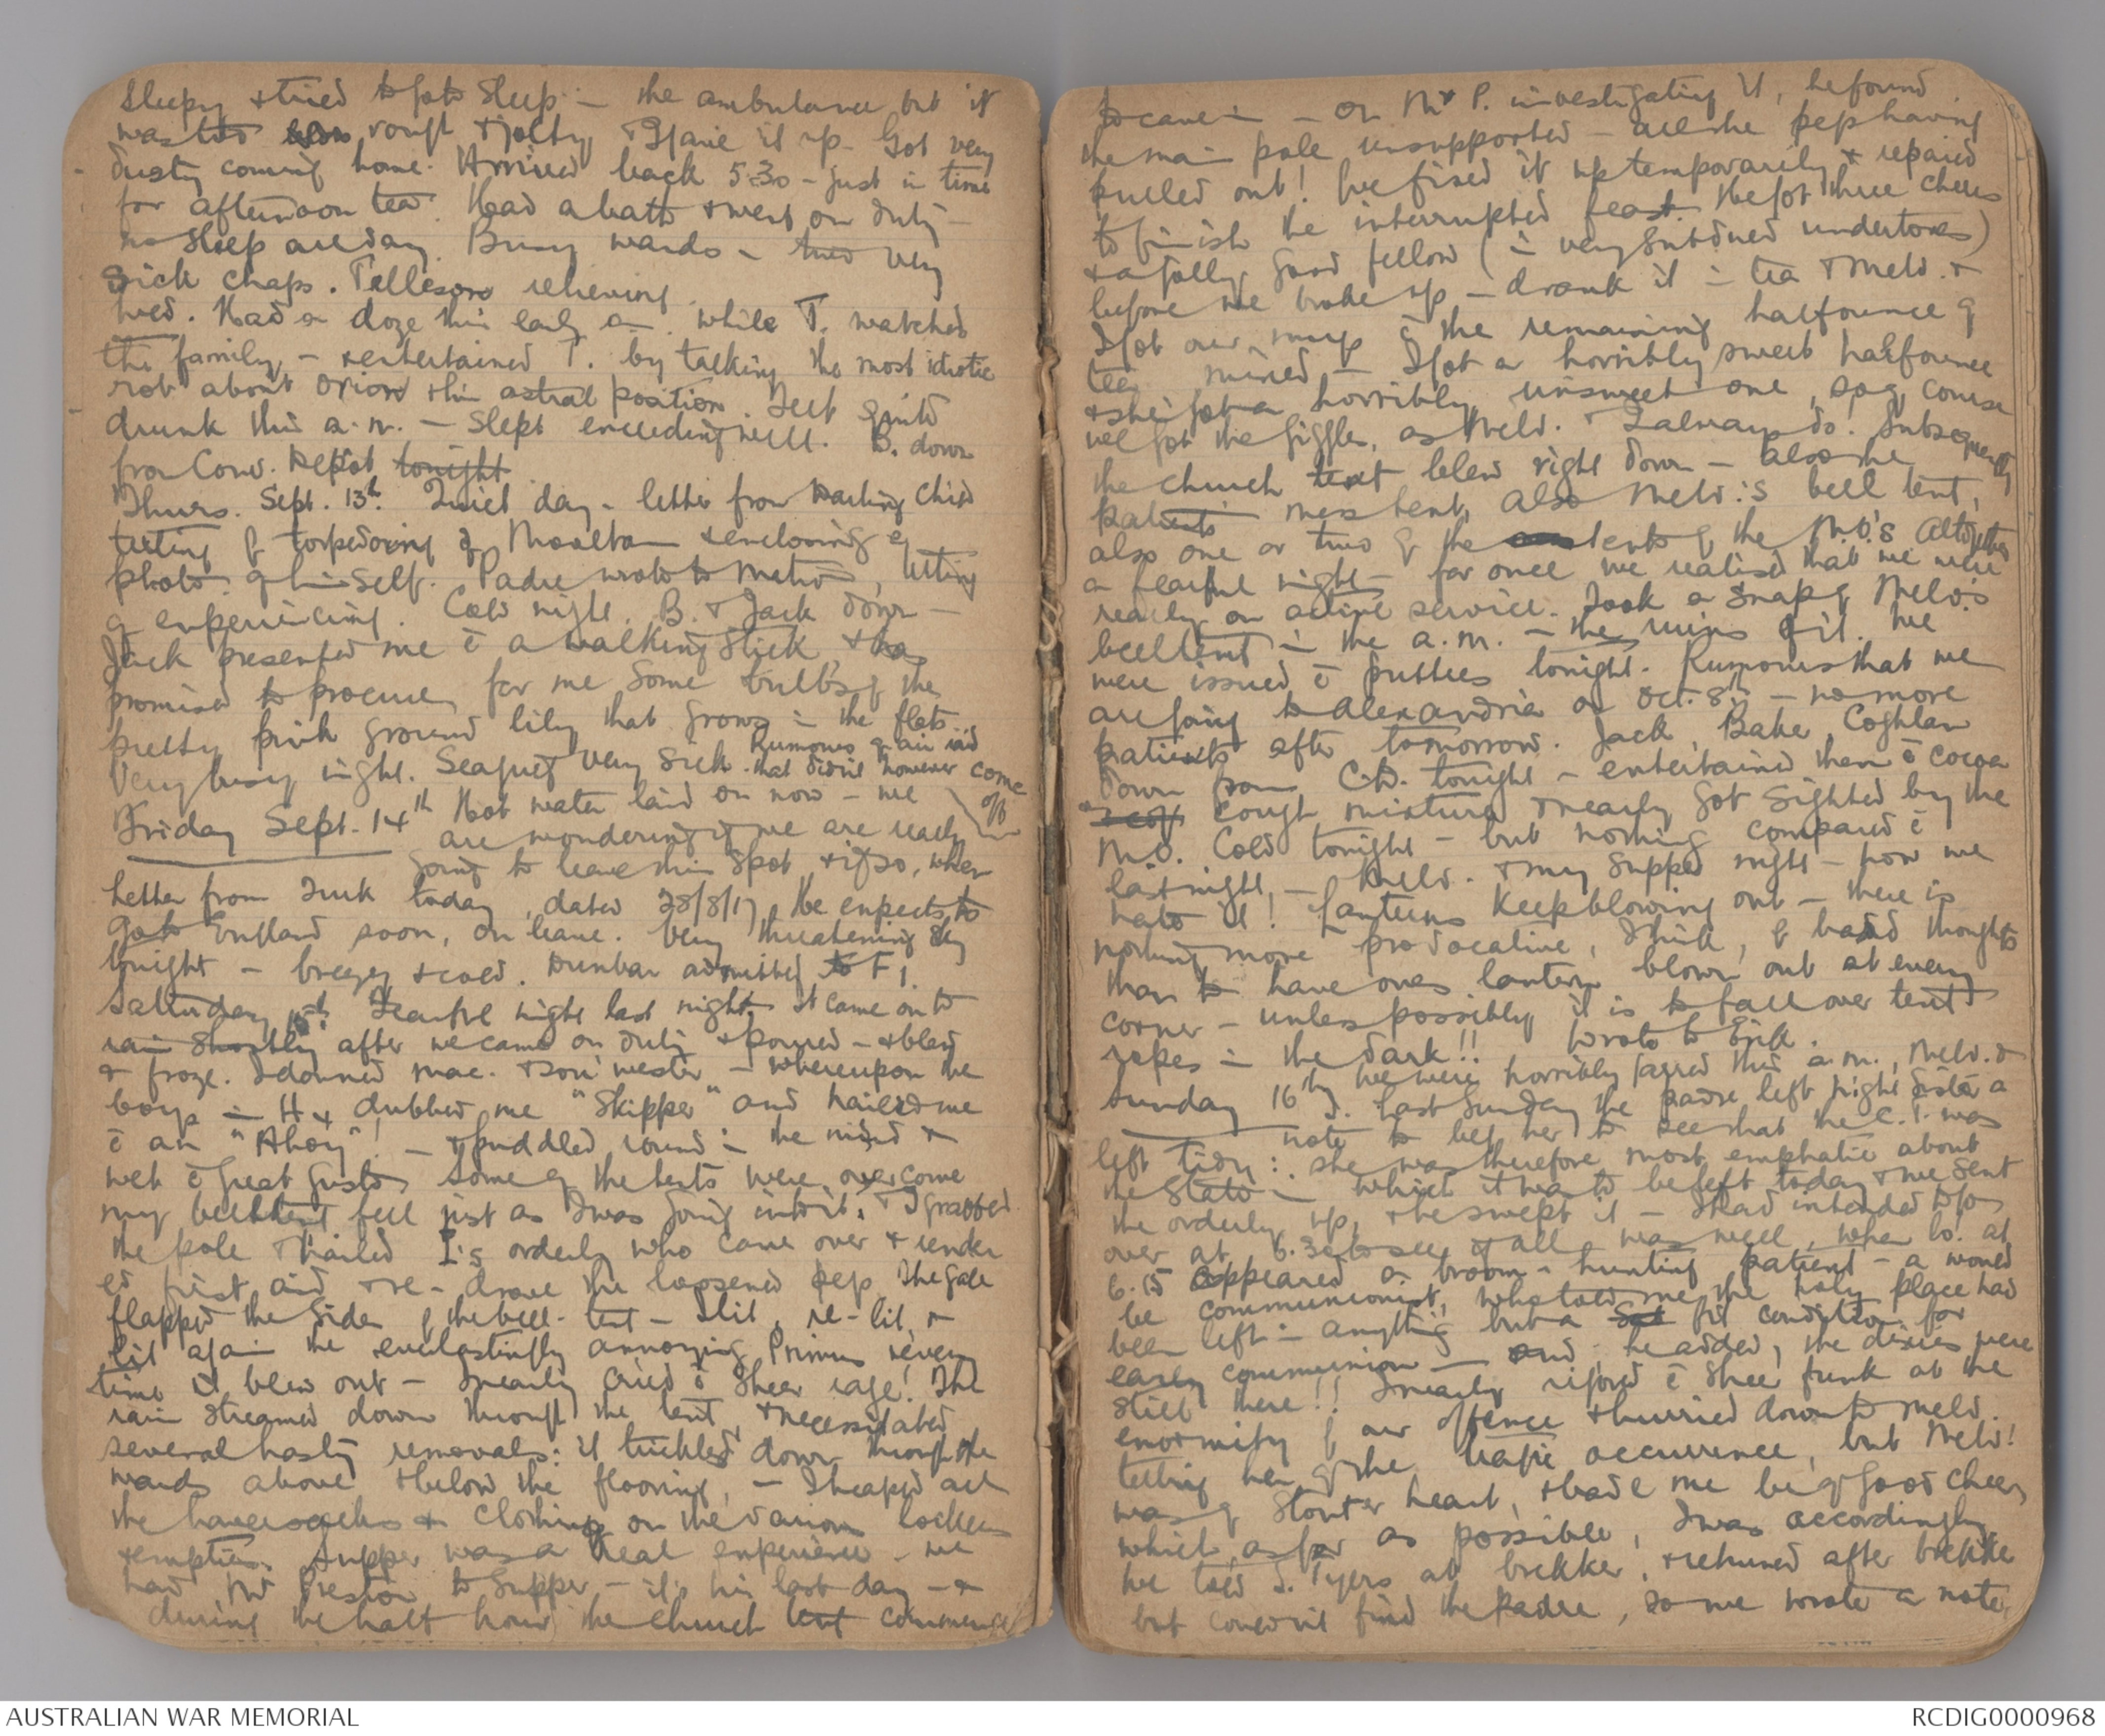 sleepy & tried to go to sleep in the ambulance but it
was too rough & jolty & I gave it up. Got very
dusty coming home. Arrived back 5.30 - just in time
for afternoon tea. Had a bath & went on duty -
no sleep all day. Busy wards - two very
sick chaps. Telleson relieving.
Wed. Had a doze this early am. while T. watched
the family, - & entertained T. by talking the most idiotic
rot about Orion & his astral position. Felt quite
drunk this a.m. - Slept exceedingly well. B. down
from Conv. Depot tonight.
Thurs. Sept. 13th. Quiet day - letter from Harling Child
telling of torpedoing of Mooltan & enclosing a
photo of himself. Padre wrote to , telling
of experiencing. Cold night. B. & Jack down -
Jack presented me c̄ a walking stick, & has
promised to procure for me some bulbs of the
pretty pink ground lily that grows in the flats.
Very busy night. Seagust very sick. Rumours of air raid
that didn't however come
off
Friday Sept. 14th Hot water laid on now - we
are wondering if we are really
going to leave this spot & if so, when
Letter from Turk today, dated 28/8/17. He expects to
go to England soon, on leave. Very threatening sky
tonight - breezy & cold. Dunbar admitted to F1.
Saturday 15th. Fearful night last night. It came on to
rain shortly after we came on duty & poured - & blew
& froze. I donned mac. & sou'wester - whereupon the
boys in H4 dubbed me "Skipper" and hailed me
c̄ an "Ahoy"! - & puddled round in the mud &
wet c̄ great gusto. Some of the tents were overcome
my bell tent fell just as I was going into it, & I grabbed
the pole & hailed I's orderly who came over & render
ed first aid & re-drove the loosened peg. The gale
flapped the sides of the bell-tent - I lit, re-lit, &
lit again the everlastingly annoying Primus & every
time it blew out - I nearly cried c̄ sheer rage! The
rain streamed down through the tent, & necessitated
several hasty removals: it trickled down through the
wards above & below the flooring, - I heaped all
the haversacks & clothing on the various lockers
& empties. Supper was a real experience - we
had Mr Preston to supper - it's his last day - &
during the half hour the church tent commenced
to cave in - On Mr P. investigating it, he found
the main pole unsupported - all the pegs having
pulled out! We fixed it up temporarily & repaired
to finish the interrupted feast. He got three cheers
& a jolly good fellow (in very subdued undertones)
before we broke up - drank it in tea & Meld. &
I got our mugs c̄ the remaining half ounce of
tea mixed - I got a horribly sweet half ounce
& she got a horribly unsweet one, so of course
we got the giggles, as Meld. & I always do! Subsequently
the church tent blew right down - also the
patients' mess tent, also Meld.'s bell tent,
also one or two of the tents of the M.O.'s Altogether
a fearful night - for once we realised that we were
really on active service. Took a snap of Meld's
bell tent in the a.m. - the ruins of it. We
were issued c̄ puttees tonight. Rumours that we
are going to Alexandria on Oct. 8th - no more
patients after tomorrow. Jack, Bake, Coghlan
down from C.D. tonight - entertained them c̄ cocoa
& cough mixture & nearly got sighted by the
M.O. Cold tonight - but nothing compared c̄
last night. - Meld. & my supper night - how we
hate it! Lanterns keep blowing out - there is
nothing more provocative, I think, of bad thoughts
than to have ones lantern blown out at every
corner - unless possibly it is to fall over tent
ropes in the dark!! Wrote to Erik.
Sunday 16th. We were horribly jarred this a.m., Meld. &
I. Last Sunday the padre left night sister a
note to beg her to see that the C.T. was
left tidy: she was therefore most emphatic about
the state in which it was to be left today & we sent
the orderly up, & he swept it - I had intended to go
over at 6.30 to see if all was well, when lo! at
6.15 appeared a broom-hunting patient - a would
be communionist, who told me the holy place had
been left in anything but a fit condition for
early communion - and, he added, the dixies were
still there!! I nearly expired c̄ sheer funk at the
enormity of our offence & hurried down to Meld.
telling her of the tragic occurrence, but Meld!
was of stouter heart, & bade me be of good cheer,
which, as far as possible, I was accordingly.
We told S. Tyers at brekker, & returned after brekker
but couldn't find the padre, so we wrote a note,
AUSTRALIAN WAR MEMORIAL
RCDIG0000968